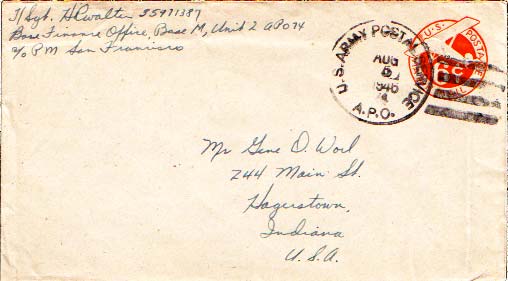 T/Sgt. H Cwalter 35971387
Base Finance Office, Base M, Unit 2 APO 74
c/o P M San Francisco
U.S. ARMY POSTAL SERVICE
AUG
1946
A.P.O.
U.S. POSTAGE
6C
Mr Gene O. Worl
244 Main St.
Hagerstown,
Indiana
U.S.A.